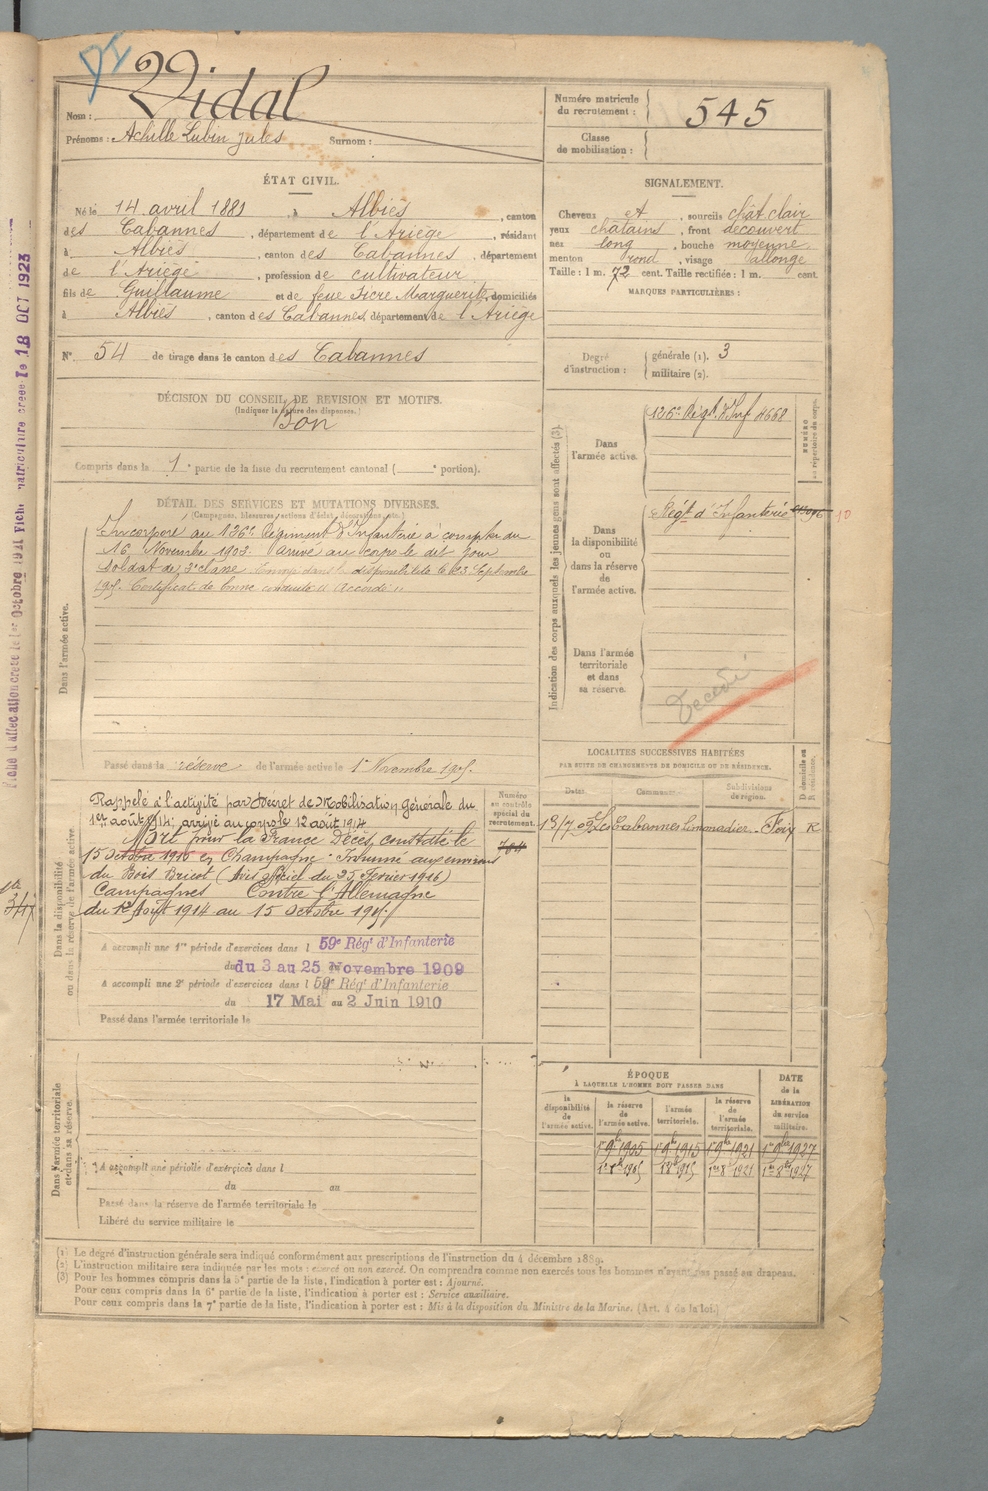 Vidal
Nom :
Prénoms : Achille Lubin Jules Surnom :
Numéro matricule
du recrutement : 545
Classe
de mobilisation :
ÉTAT CIVIL.
Né le 14 avril 1881, à Albiès, canton
des Cabannes, département de l'Ariège, résidant
à Albiès, canton des Cabannes, département
de l'Ariège, profession de cultivateur
fils de Guillaume et de feue Sicre Marguerite, domiciliés
à Albiès, canton des Cabannes, département de l'Ariège
N° 54 de tirage dans le canton des Cabannes
SIGNALEMENT.
Cheveux et, sourcils chat clair
yeux chatains, front découvert
nez long, bouche moyenne
menton rond, visage allongé
Taille : 1 m. 72 cent. Taille rectifiée : 1 m. cent.
MARQUES PARTICULIÈRES :
Degré
d'instruction :
générale (1). 3
militaire (2).
DÉCISION DU CONSEIL DE REVISION ET MOTIFS.
(Indiquer la nature des dispenses.)
Bon
Compris dans la 1e partie de la liste du recrutement cantonal ( e portion).
DÉTAIL DES SERVICES ET MUTATIONS DIVERSES.
(Campagnes, blessures, actions d'éclat, décorations, etc.)
Dans l'armée active.
Incorporé au 126e Régiment d'Infanterie à compter du
16 Novembre 1902. arrivé au corps le dit jour
Soldat de 2e classe. Envoyé dans la disponibilité le 23 Septembre
1905. Certificat de bonne conduite "Accordé"
Passé dans la réserve de l'armée active le 1er Novembre 1905.
Indication des corps auxquels les jeunes gens sont affectés (3)
NUMÉRO
au répertoire du corps.
Dans
l'armée active.
126e Régt d'Inf 4668
Dans
la disponibilité
ou
dans la réserve
de
l'armée active.
Régt d'Infanterie
10
Dans l'armée
territoriale
et dans
sa réserve.
Décédé
LOCALITÉS SUCCESSIVES HABITÉES
PAR SUITE DE CHANGEMENTS DE DOMICILE OU DE RÉSIDENCE.
Dates. Communes. Subdivisions
de région. D domicile ou
R résidence.
Les Cabannes limonadier Foix R
Dans la disponibilité
ou dans la réserve de l'armée active.
Numéro
au contrôle
spécial du
recrutement.
Rappelé à l'activité par Décret de Mobilisation Générale du
1er août 1914; arrivé au corps le 12 août 1914
Mort pour la France Décès constaté le
15 Octobre 1915 en Champagne. Inhumé aux environs
du Bois Bricot (Avis officiel du 25 Février 1916)
Campagnes Contre l'Allemagne
du 12 Août 1914 au 15 Octobre 1915
347
A accompli une 1re période d'exercices dans l 59e Régt d'Infanterie
du du 3 au 25 Novembre 1909
A accompli une 2e période d'exercices dans l 59e Régt d'Infanterie
du 17 Mai au 2 Juin 1910
Passé dans l'armée territoriale le
Dans l'armée territoriale
et dans sa réserve.
A accompli une période d'exercices dans l
du au
Passé dans la réserve de l'armée territoriale le
Libéré du service militaire le
ÉPOQUE
À LAQUELLE L'HOMME DOIT PASSER DANS
DATE
de la
LIBÉRATION
du service
militaire.
la
disponibilité
de
l'armée active.
la réserve
de
l'armée active.
l'armée
territoriale.
la réserve
de
l'armée
territoriale.
1er 9bre 1905 1er 9bre 1915 1er 9bre 1921 1er 9bre 1927
1er 8bre 1905 1er 8bre 1915 1er 8bre 1921 1er 8bre 1927
(1) Le degré d'instruction générale sera indiqué conformément aux prescriptions de l'instruction du 4 décembre 1889.
(2) L'instruction militaire sera indiquée par les mots : exercé ou non exercé. On comprendra comme non exercés tous les hommes n'ayant pas passé au drapeau.
(3) Pour les hommes compris dans la 5e partie de la liste, l'indication à porter est : Ajourné.
Pour ceux compris dans la 6e partie de la liste, l'indication à porter est : Service auxiliaire.
Pour ceux compris dans la 7e partie de la liste, l'indication à porter est : Mis à la disposition du Ministre de la Marine. (Art. 4 de la loi.)
Fiche d'affectation créée le 1er Octobre 1911 Fiche matriculaire créée le 18 OCT 1923